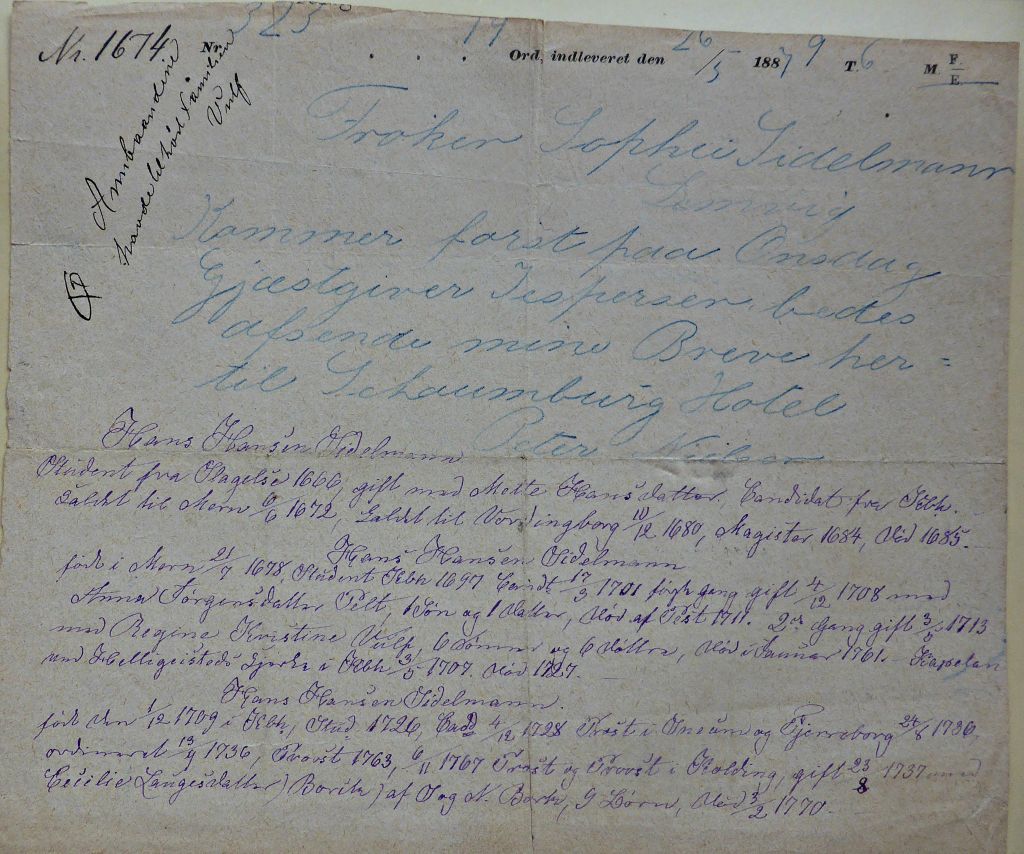 Nr. 1674
Nr. 323 . . . 19 Ord, indleveret den 26/5 1887 9 T. 6 M. F/E
Armbaandine
havde tilhørt Familien
Vulf
Frøken Sophie Sidelmann
Lemvig
Kommer først paa Onsdag
Gjæstgiver Jespersen bedes
afsende mine Breve her=
til Schaumburg Hotel
Peter Nielsen
Hans Hansen Sidelmann
Student fra Slagelse 1666, gift med Mette Hansdatter, Candidat fra Kbh.
Kaldet til Mern 6/6 1672, Kaldet til Vordingborg 10/12 1680, Magister 1684, Død 1685.
Hans Hansen Sidelmann
født i Mern 21/7 1678, Student Kbh 1697 Candt 17/3 1701 første Gang gift 4/12 1708 med
Anna Jørgensdatter Pelt, 1 Søn og 1 Datter, Død af Pest 1711. 2den Gang gift 3/5 1713
med Regine Kristine Vulf, 6 Sønner og 6 Døttre, Død i Januar 1761. – Kapelan
ved Helligeisteds Kjerke i Kbh. 3/5 1707. Død 1727. –
Hans Hansen Sidelmann.
født den 1/12 1709 i Kbh, Stud. 1726, Cand 4/12 1728 Præst i og Tjerreborg 24/8 1736,
ordineret 13/9 1736, Provst 1763, 6/11 1767 Præst og Provst i Kolding, gift 23/8 1737 med
Cecilie Laugesdatter) Boritz) af J og N. 9 Børn, Død 3/2 1770. –